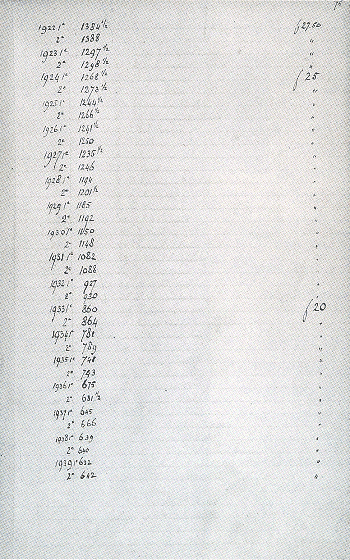 1922 1e 1384 1/2 f 27.50
2e 1388 "
1923 1e 1297 1/2 "
2e 1298 1/2 "
1924 1e 1268 1/2 f 25
2e 1273 1/2 "
1925 1e 1244 1/2 "
2e 1266 1/2 "
1926 1e 1241 1/2 "
2e 1250 "
1927 1e 1235 1/2 "
2e 1246 "
1928 1e 1194 "
2e 1201 1/2 "
1929 1e 1185 "
2e 1192 "
1930 1e 1150 "
2e 1148 "
1931 1e 1082 "
2e 1088 "
1932 1e 927 "
2e 930 "
1933 1e 860 f 20
2e 864 "
1934 1e 781 "
2e 789 "
1935 1e 748 "
2e 743 "
1936 1e 675 "
2e 681 1/2 "
1937 1e 645 "
2e 666 "
1938 1e 639 "
2e 640 "
1939 1e 632 "
2e 642 "